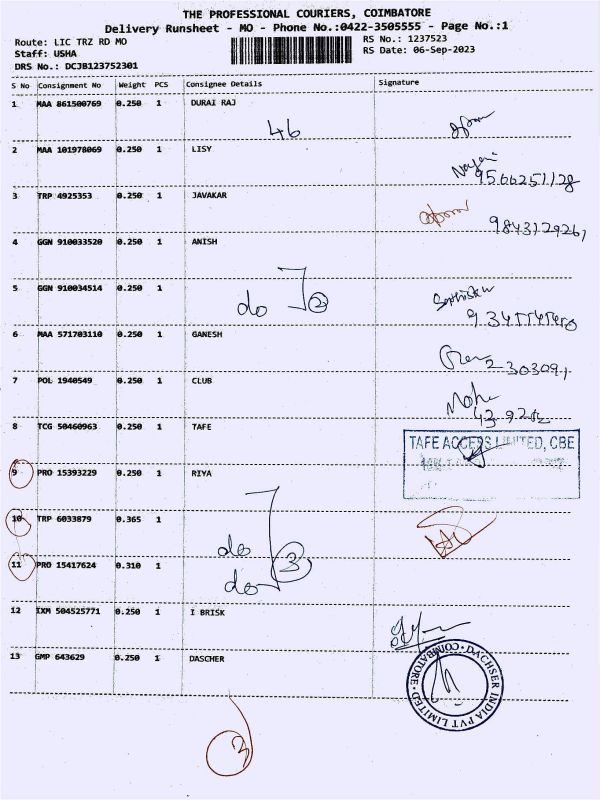 THE PROFESSIONAL COURIERS, COIMBATORE
Delivery Runsheet - MO - Phone No.:0422-3505555 - Page No.:1
Route: LIC TRZ RD MO
RS No.: 1237523
Staff: USHA
RS Date: 06-Sep-2023
DRS No.: DCJB123752301
S No Consignment No Weight PCS Consignee Details Signature
1 MAA 861500769 0.250 1 DURAI RAJ
46
2 MAA 101978069 0.250 1 LISY
9566251128
3 TRP 4925353 0.250 1 JAVAKAR
9843129261
4 GGN 910033520 0.250 1 ANISH
5 GGN 910034514 0.250 1
do 2
6 MAA 571703110 0.250 1 GANESH
230309,
7 POL 1940549 0.250 1 CLUB
8 TCG 50460963 0.250 1 TAFE
TAFE ACCESS LIMITED, CBE
9 PRO 15393229 0.250 1 RIYA
10 TRP 6033879 0.365 1
do
11 PRO 15417624 0.310 1
do 3
12 IXM 504525771 0.250 1 I BRISK
13 GMP 643629 0.250 1 DASCHER
DACHSER INDIA PVT LIMITED · COIMBATORE ·
3